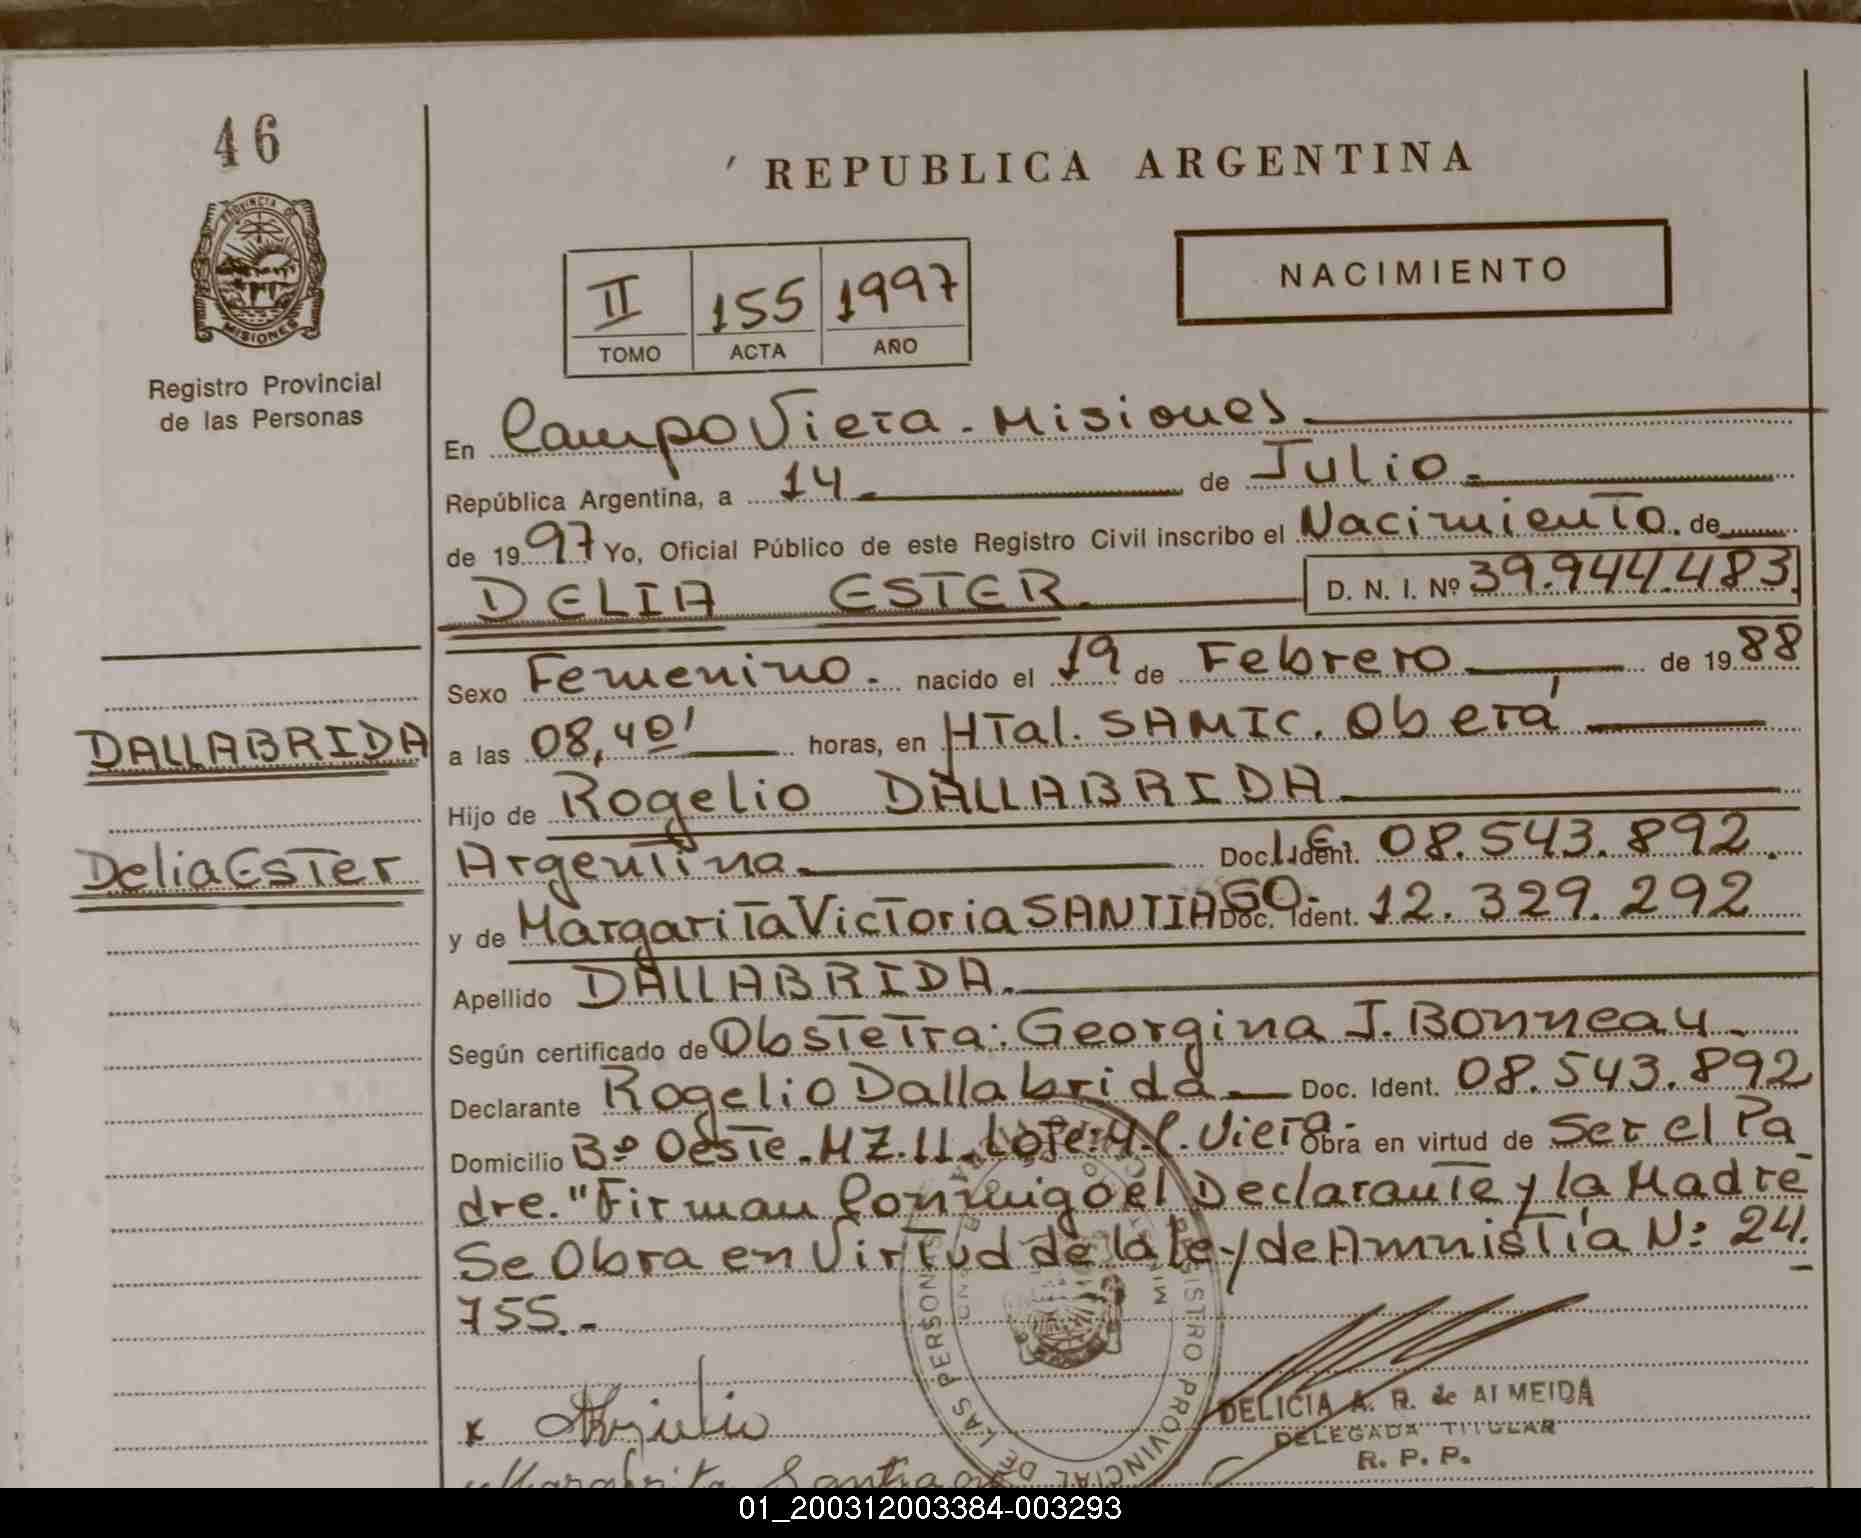 46
PROVINCIA DE
MISIONES
Registro Provincial
de las Personas
DALLABRIDA
Delia Ester
REPUBLICA ARGENTINA
NACIMIENTO
II 155 1997
TOMO ACTA AÑO
En Campo Viera - Misiones
República Argentina, a 14 de Julio
de 1997 Yo, Oficial Público de este Registro Civil inscribo el Nacimiento. de
DELIA ESTER. D. N. I. Nº 39.944.483.
Sexo Femenino. nacido el 19 de Febrero de 1988
a las 08,40' horas, en HTal. SAMIC. Oberá
Hijo de Rogelio DALLABRIDA
Argentina. Doc. Ident. L.E. 08.543.892.
y de Margarita Victoria SANTIAGO. Doc. Ident. 12.329.292
Apellido DALLABRIDA.
Según certificado de Obstetra: Georgina J. Bonneau
Declarante Rogelio Dallabrida Doc. Ident. 08.543.892
Domicilio Bº Oeste. MZ. 11. Lote: 4. C. Viera Obra en virtud de Ser el Pa
dre. "Firman Conmigo el Declarante y la Madre
Se Obra en Virtud de la ley de Amnistía N: 24.
755.-
REGISTRO PROVINCIAL DE LAS PERSONAS
DELICIA A. R. de ALMEIDA
DELEGADA TITULAR
R. P. P.
x
Margarita Santiago
01_200312003384-003293